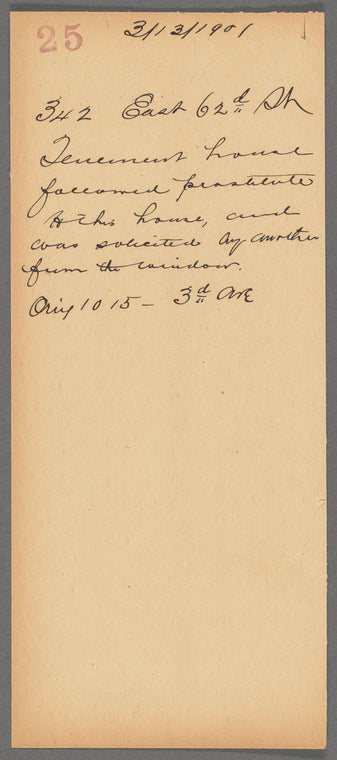 25
3/13/1901
342 East 62d St
Tenement house
followed prostitute
to this house, and
was solicited by another
from the window.
1015 - 3d Ave